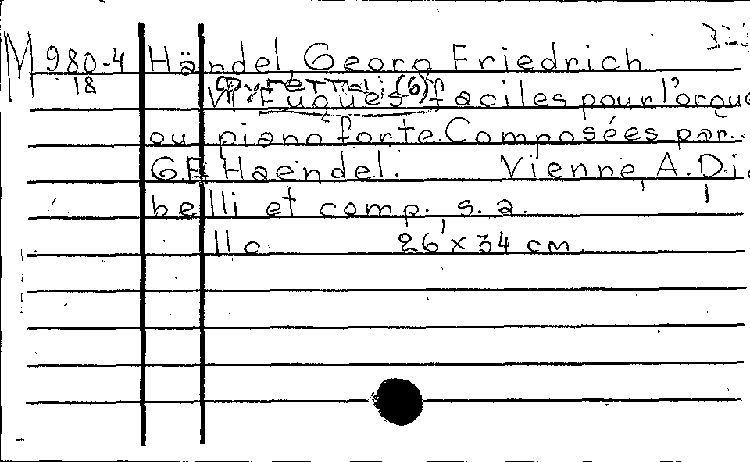 M 980-4 Händel, Georg Friedrich
18
VI Fugues faciles pour l'orgue
ou piano forte. Composées par
G.F. Haendel. Vienne, A. Dia
belli et comp. s. a.
11 c. 26 x 34 cm